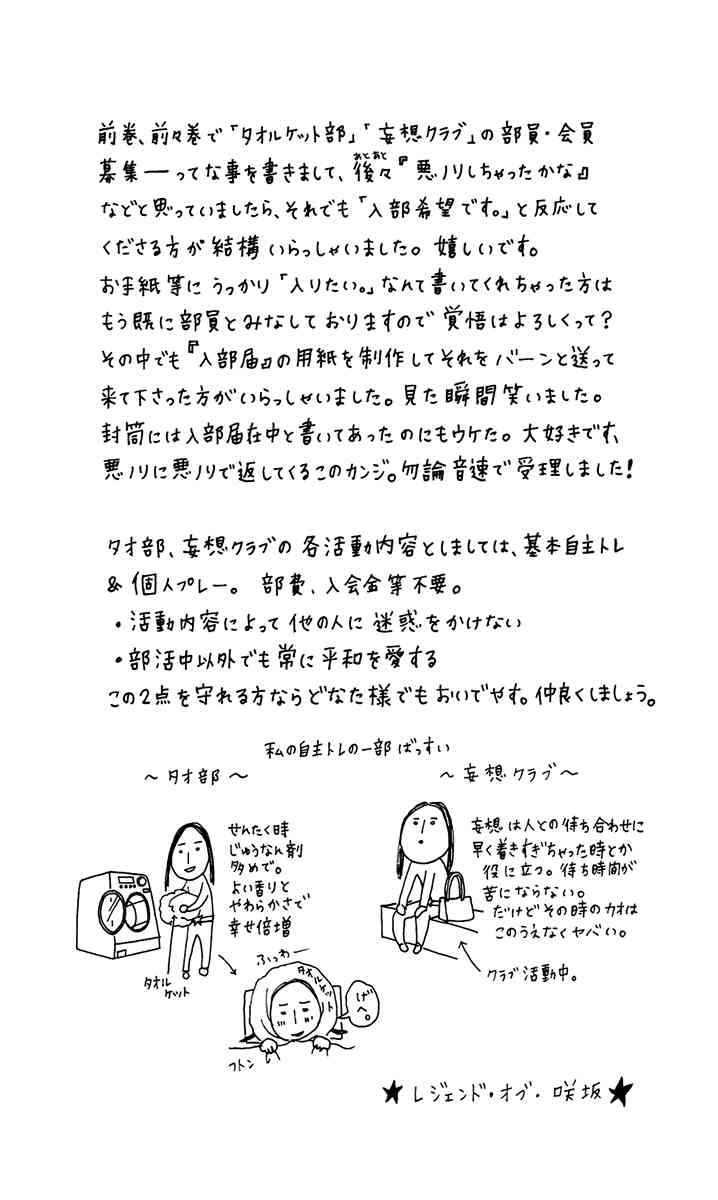 前巻、前々巻で「タオルケット部」「妄想クラブ」の部員・会員
募集ーってな事を書きまして、後々『悪ノリしちゃったかな』
あとあと
などと思っていましたら、それでも「入部希望です。」と反応して
くださる方が結構いらっしゃいました。嬉しいです。
お手紙等にうっかり「入りたい。」なんて書いてくれちゃった方は
もう既に部員とみなしておりますので覚悟はよろしくって?
その中でも『入部届』の用紙を制作してそれをバーンと送って
来て下さった方がいらっしゃいました。見た瞬間笑いました。
封筒には入部届在中と書いてあったのにもウケた。大好きです、
悪ノリに悪ノリで返してくるこのカンジ。勿論音速で受理しました!
タオ部、妄想クラブの各活動内容としましては、基本自主トレ
& 個人プレー。 部費、入会金等不要。
・活動内容によって他の人に迷惑をかけない
・部活中以外でも常に平和を愛する
この2点を守れる方ならどなた様でもおいでやす。仲良くしましょう。
私の自主トレの一部ばっすい
〜タオ部〜
せんたく時
じゅうなん剤
多めで。
よい香りと
やわらかさで
幸せ倍増
タオル
ケット
ふっわー
タオルケット
げへ。
フトン
〜妄想クラブ〜
妄想は人との待ち合わせに
早く着きすぎちゃった時とか
役に立つ。待ち時間が
苦にならない。
だけどその時のカオは
このうえなくヤバい。
クラブ活動中。
★レジェンド・オブ・咲坂★